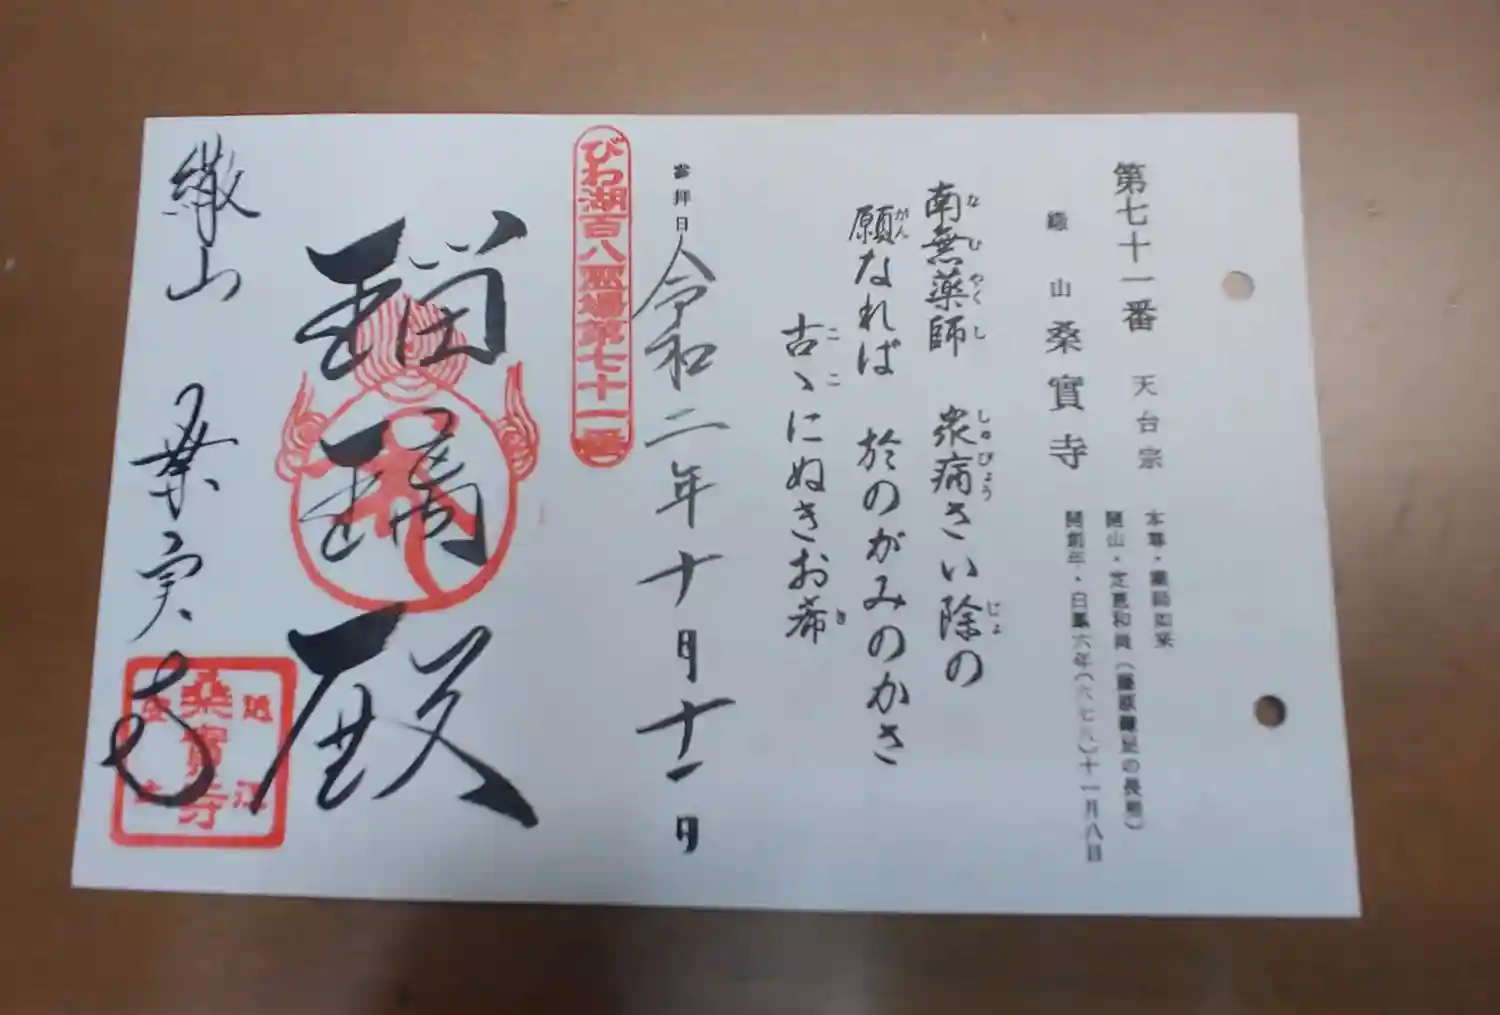 第七十一番 天台宗 本尊・薬師如来
繖山 桑實寺 開山・定恵和尚(藤原鎌足の長男)
開創年・白鳳六年(六七八)十一月八日
南無薬師 衆病さい除の
なむやくし しゅびょう じょ
願なれば 於のがみのかさ
がん
古ヽにぬきお希
ここ き
参拝日 令和二年十月十一日
びわ湖百八霊場第七十一番
瑠璃殿
繖山 桑実寺
桑實寺